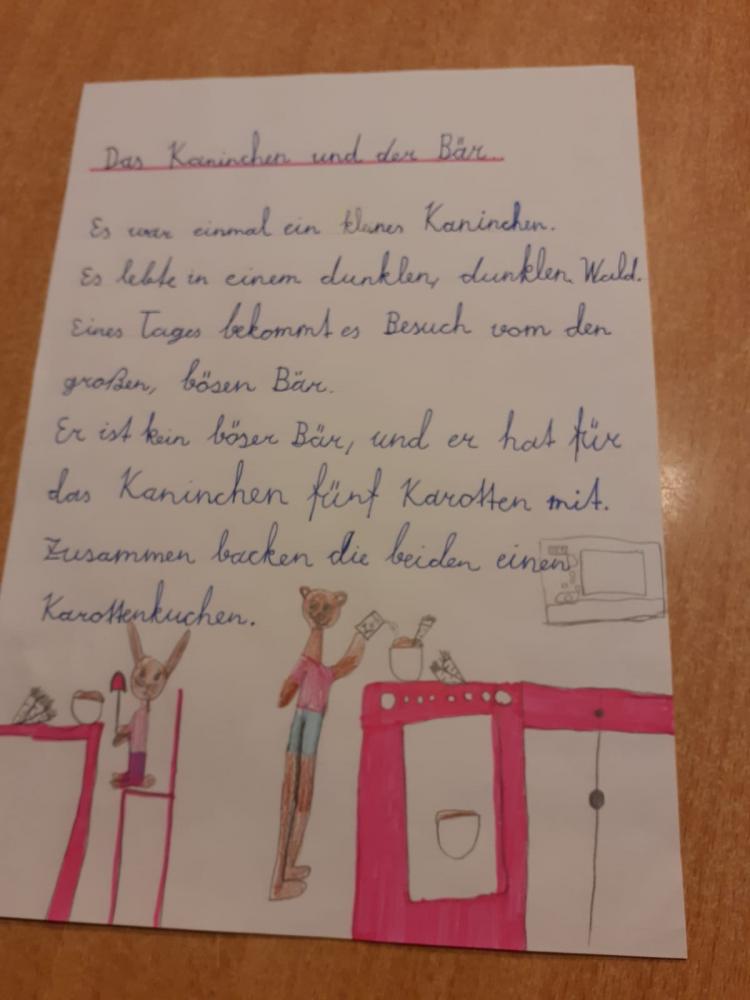 Das Kaninchen und der Bär.
Es war einmal ein kleines Kaninchen.
Es lebte in einem dunklen, dunklen Wald.
Eines Tages bekommt es Besuch vom den
großen, bösen Bär.
Er ist kein böser Bär, und er hat für
das Kaninchen fünf Karotten mit.
Zusammen backen die beiden einen
Karottenkuchen.